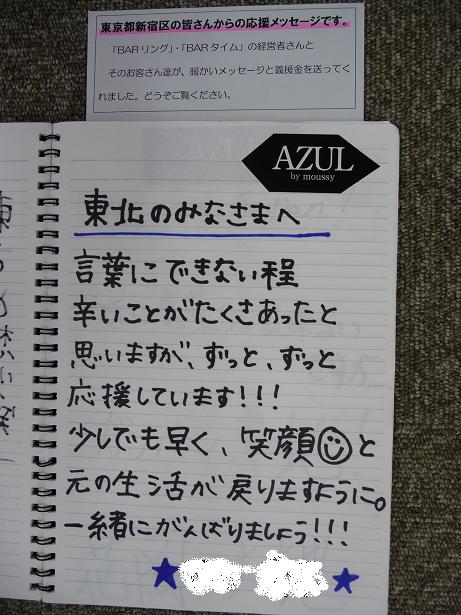 東京都新宿区の皆さんからの応援メッセージです。
「BARリング」・「BARタイム」の経営者さんと
そのお客さん達が、暖かいメッセージと義援金を送ってく
れました。どうぞご覧ください。
AZUL
by moussy
東北のみなさまへ
言葉にできない程
辛いことがたくさあったと
思いますが、ずっと、ずっと
応援しています!!!
少しでも早く、笑顔☺と
元の生活が戻りますように。
一緒にがんばりましょう!!!